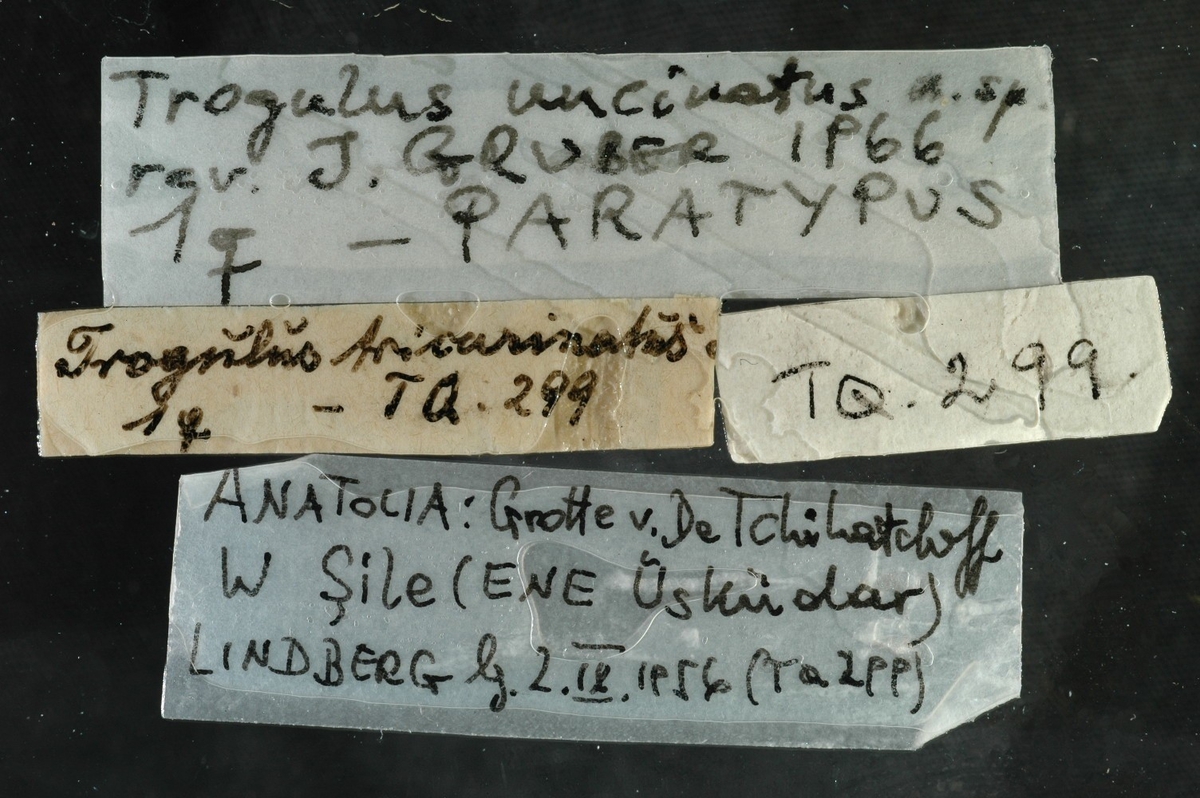 Trogulus uncinatus n. sp.
rev. J. GRUBER 1966
1♀ – PARATYPUS
Trogŭlŭs tricarinatŭs
1♀ – TQ. 299
TQ. 299.
ANATOLIA: Grotte v. De Tchihatcheff
W Şile (ENE Üsküdar)
LINDBERG lg. 2.IX.1956 (TQ 299)